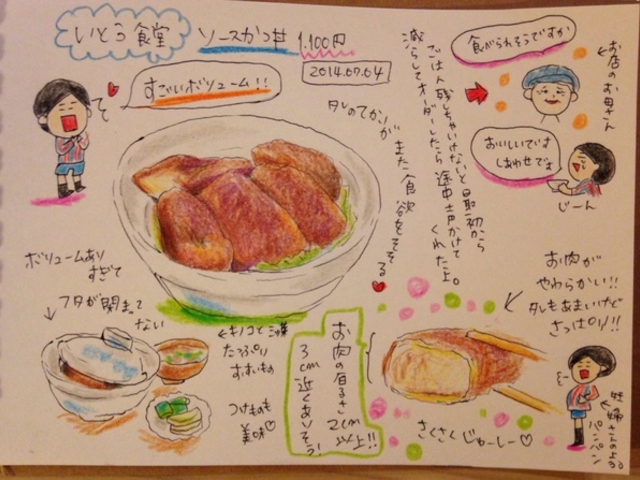 いとう食堂
ソースかつ丼 1.100円
2014.07.04
すごいボリューム!!
タレのてかりが
また食欲をそそる
ごはん残しちゃいけないと最初から
減らしてオーダーしたら途中声かけて
くれた上。
食べられそうですか
お店のお母さん
おいしいです
しあわせです
じーん
ボリュームあり
すぎて
フタが閉まって
ない
キノコと三つ葉
たっぷり
すいもの
つけものも
美味♡
お肉の厚さ2cm
以上!!
3cm近くありそう!
お肉が
やわらかい!!
タレもあまいけど
さっぱり!!
さくさくじゅーしー♡
妊婦さんのよう。
パンパン